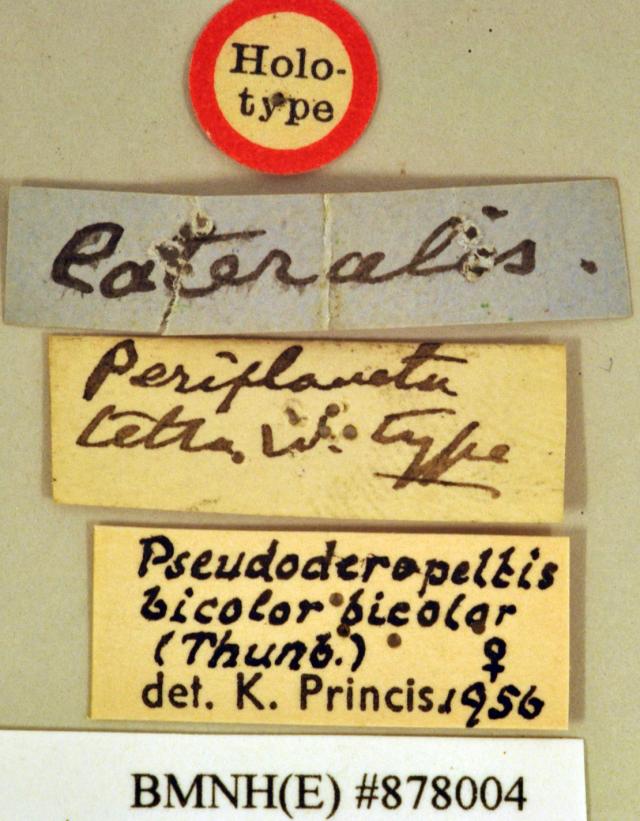 Holo-
type
lateralis.
Periplaneta
tetra, W. type
Pseudoderopeltis
bicolor bicolor
(Thunb.) ♀
det. K. Princis. 1956
BMNH(E) #878004